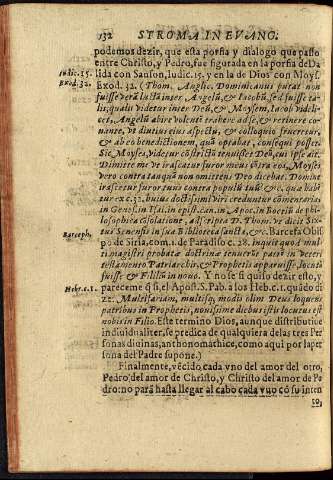 132 STROMA IN EVANG.
podemos dezir, que esta porfia y dialogo que passo
entre Christo, y Pedro, fue figurada en la porfia de Da
Iudic. 15.
lida con Sanson, Iudic. 15. y en la de Dios con Moys.
Exod. 32.
Exod. 32. (Thom. Anglic. Dominicanus putat non
fuisse verā luctā inter Angelū, & Iacobū, sed fuisse ta-
lē, qualis videtur inter Deū, & Moysem. Iacob videli-
cet, Angelū abire volentē trahere ad se, & retinere co-
nante, vt diutius eius aspectu, & colloquio frueretur,
& ab eo benedictionem, quā optabat, consequi posset.
Sic Moyses, videtur cōstrictū tenuisset Deū, cui ipse ait.
Dimitte me vt irascatur furor meus cōtra eos, Moyses
vero contra tanquā non omittens Deo dicebat. Domine
irascetur furor tuus contra populū tuū &c. quæ habē
tur exc. 32. huius doctissimi viri creduntur comentaria
in Genes. in Isai. in epist. can. in Apoc. in Boeciū de phi-
losophica cōsolatione, adscripta D. Thom. vt dicit Six-
tus Senensis in sua Biblioteca sancta, &c. Barcefa Obis
Barceph.
po de Siria, com. 1. de Paradiso c. 28. inquit quod mul-
ti magistri probatæ doctrinæ tenuerūt pater in veteri
testamento Patriarchis, & Prophetis apparuisse, locutū
fuisse & Filiū in nouo. Y no se si quiso dezir esto, y
Hebr. c. 1.
pareceme q̄ si, el Apost. S. Pab. a los Heb. c. 1. quādo di
zz. Multifariam, multisq, modis olim Deus loquens
patribus in Prophetis, nouissime diebus istis locutus est
nobis in Filio. Este termino Dios, aunque distributiod
indiuidualiter, se predica de qualquiera de las tres Per
sonas diuinas, anthonomathice, como aqui por la per
sona del Padre supone.)
Finalmente, vēcido, cada vno del amor del otro,
Pedro del amor de Christo, y Christo del amor de Pe
dro: no parā hasta llegar al cabo cada vuo cō su inten
to,